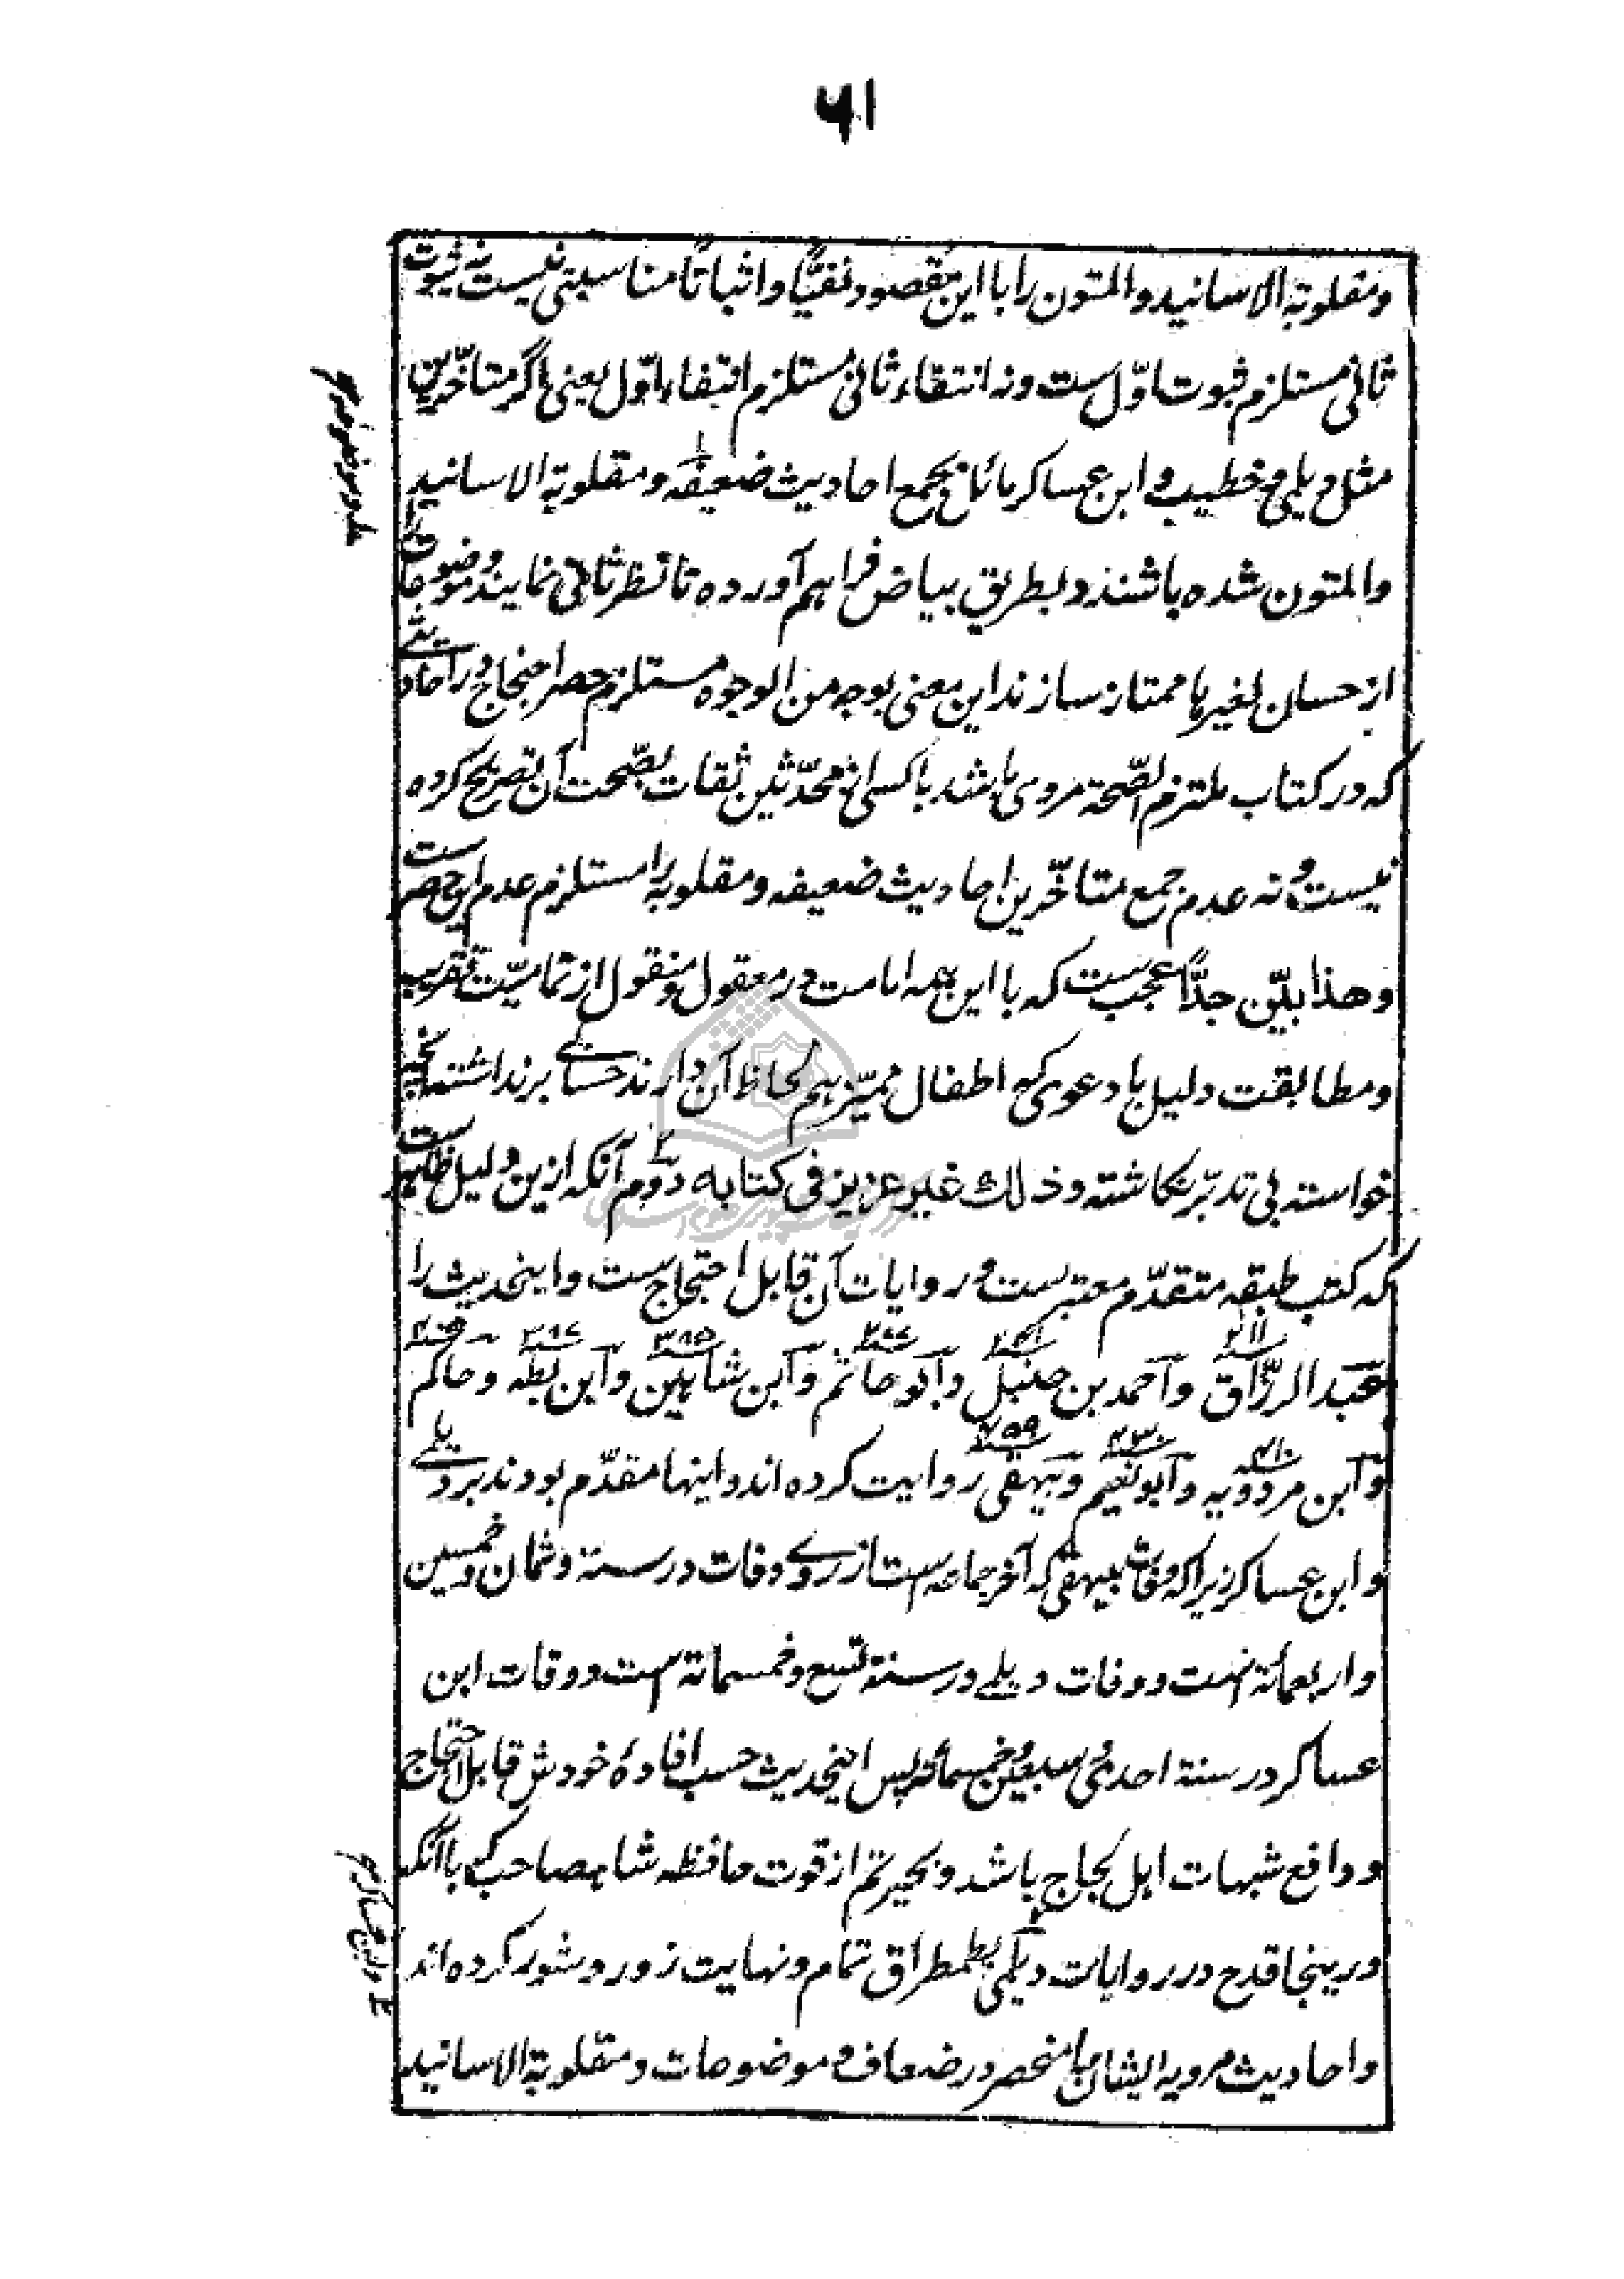 ۵۱
ومقلوبة الاسانید والمتون را با این مقصود نفیًا و اثباتًا مناسبتی نیست نه ثبوت
ثانی مستلزم ثبوت اوّل ست و نه انتفاء ثانی مستلزم انتفاء اوّل یعنی اگر متأخّرین
مثل دیلمی و خطیب و ابن عساکر مائل بجمع احادیث ضعیفه و مقلوبة الاسانید
والمتون شده باشند و بطریق بیاض فراهم آورده تا نظر ثانی نمایند و موضوعات
از حسان لغیرها ممتاز سازند این معنی بوجه من الوجوه مستلزم حصر احتجاج در احادیثی
که در کتاب ملتزم الصّحة مروی باشد یا کسی از محدّثین ثقات بصّحت آن تصریح کرده
نیست و نه عدم جمع متأخّرین احادیث ضعیفه و مقلوبه را مستلزم عدم این حصر ست
وهذا بیّن جدًّا عجب ست که با این همه امامت در معقول و منقول از تمامیّت تقریب
و مطابقت دلیل با دعوی که اطفال ممیّز هم لحاظ آن دارند حسابے برنداشته
خواسته بی تدبّر نگاشته وذلك غیر عزیز فی کتابه دوم آنکه ازین دلیل ظاهر ست
که کتب طبقه متقدّم معتبر ست و روایات آن قابل احتجاج ست و اینحدیث را
عبد الرزّاق و احمد بن حنبل و ابو حاتم و ابن شاهین و ابن بطه و حاکم
و ابن مردویه و ابو نعیم و بیهقی روایت کرده اند و اینها مقدّم بودند بر دیلمے
و ابن عساکر زیرا که وفات بیهقی که آخر جماعه ست از روے وفات در سنة و ثمان و خمسین
واربعمائة است و وفات دیلمے در سنة تسع و خمسمائة است و وفات ابن
عساکر در سنة احدی و سبعین و خمسمائة پس اینحدیث حسب افادۀ خودش قابل احتجاج
و دافع شبهات اهل لجاج باشد و بحیرتم از قوت حافظه شاهصاحب که با آنکه
درینجا قدح در روایات دیلمی بطمطراق تمام و نهایت زور و شور کرده اند
و احادیث مرویه ایشان را منحصر در ضعاف و موضوعات و مقلوبة الاسانید